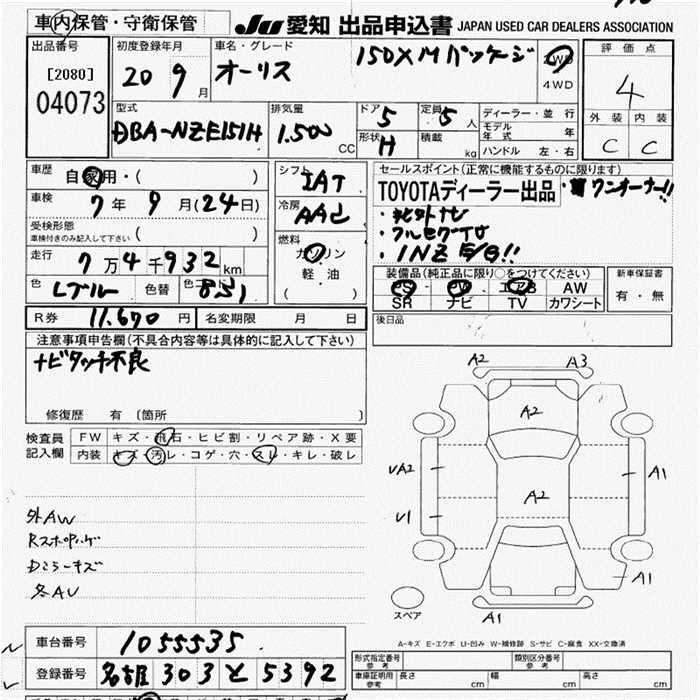 車内保管・守衛保管
JU 愛知 出品申込書 JAPAN USED CAR DEALERS ASSOCIATION
出品番号
[2080]
04073
初度登録年月
20 9月
車名・グレード
オーリス 150X Mパッケージ
2WD
4WD
評価点
4
外装 内装
C C
型式
DBA-NZE151H
排気量
1.500 CC
ドア 5
形状 H
定員 5人
積載 kg
ディーラー・並行
モデル年式 年
ハンドル 左・右
車歴 自家用・( )
車検 7年 9月(24日)
受検形態
車検付きのみ記入して下さい ( )
走行 7万4千932km
色 Lブルー 色替 色コード 8S1
シフト IAT
冷房 AAC
燃料
ガソリン
軽・油
( )
セールスポイント(正常に機能するものに限ります)
TOYOTAディーラー出品 ワンオーナー!!
・フルセグTV
・1NZ E/G!!
装備品(純正品に限り○をつけてください)
PS・PW エアB AW
SR ナビ TV カワシート
新車保証書
有・無
R券 11.670円 名変期限 月 日
後日品
注意事項申告欄(不具合内容等は具体的に記入して下さい)
ナビタッチ不良
修復歴 有 〔箇所 〕
検査員記入欄
FW キズ・飛石・ヒビ割・リペア跡・X要
内装 キズ・汚レ・コゲ・穴・スレ・キレ・破レ
外AW
Rスポイラーハゲ
Dミラーキズ
A2 A3
A2
UA2
A1
A2
U1
A1
スペア
A1
A-キズ E-エクボ U-凹み W-補修跡 S-サビ C-腐食 XX-交換済
車台番号 1055535
登録番号 名古屋 303 と 5392
形式指定番号 参考
類別区分番号 参考
車庫証明用 参考 長さ cm 幅 cm 高さ cm